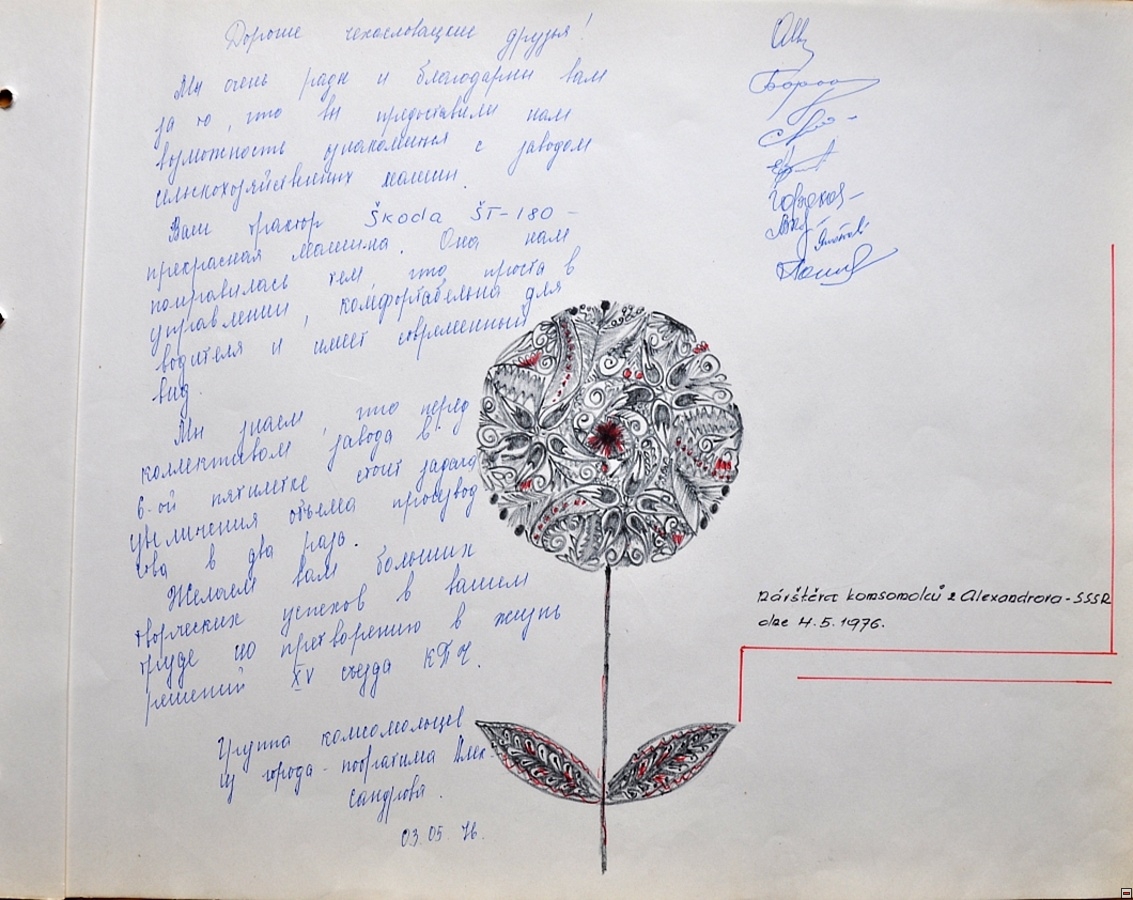 Дорогие чехословацкие друзья!
Мы очень рады и благодарны вам
за то, что вы предоставили нам
возможность ознакомиться с заводом
сельскохозяйственных машин.
Ваш трактор Škoda ŠT-180 -
прекрасная машина. Она нам
понравилась тем, что проста в
управлении, комфортабельна для
водителя и имеет современный
вид.
Мы знаем, что перед
коллективом завода в
6-ой пятилетке стоит задача
увеличения объема производ
ства в два раза.
Желаем вам больших
творческих успехов в вашем
труде по претворению в жизнь
решений XV съезда КПЧ.
Группа комсомольцев
из города-побратима Алек-
сандрова.
03.05.76.
Návštěva komsomolců z Alexandrova-SSSR
dne 4.5.1976.